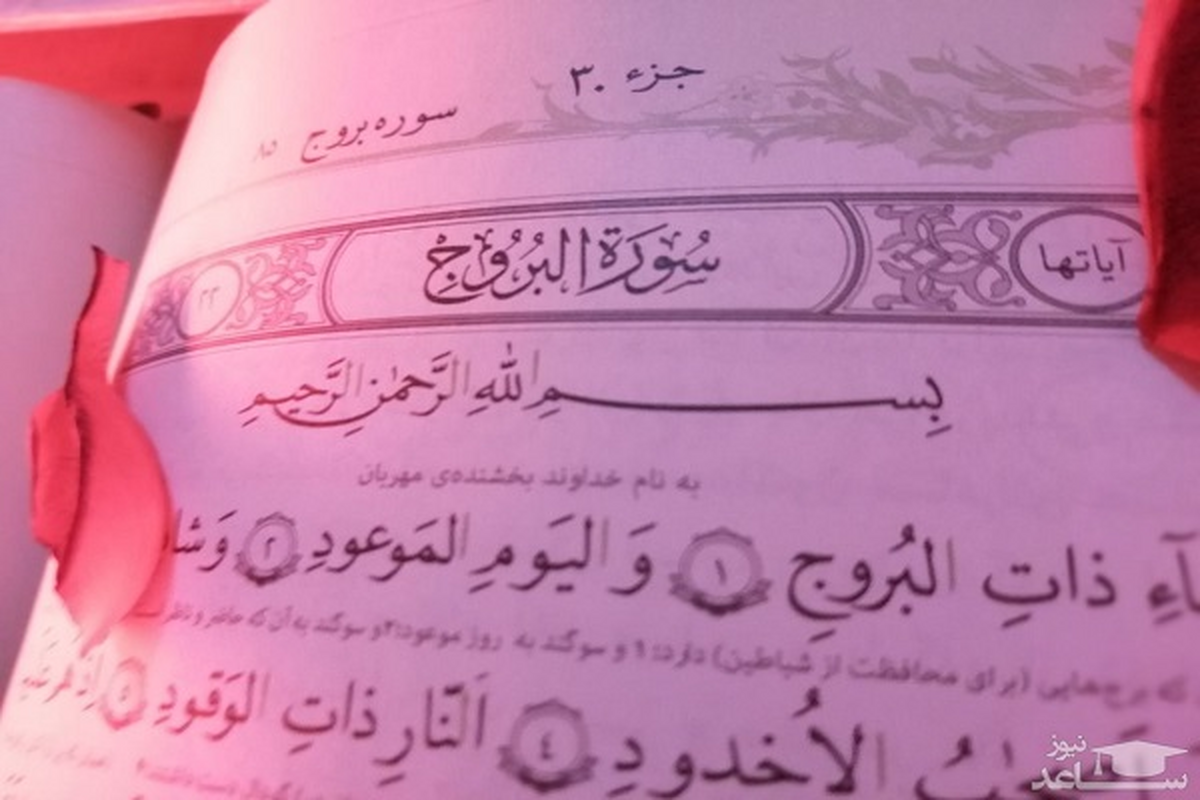 جزء ۳۰
سوره بروج ۸۵
آیاتها
سُورَة البُرُوج
۲۲
بِسـمِ اللهِ الرَّحمٰنِ الرَّحیمِ
به نام خداوند بخشنده‌ی مهربان
ذاتِ البُروجِ ۱ وَ الیَومِ المَوعودِ ۲
برج‌هایی (برای محافظت از شیاطین) دارد؛ ۱ و سوگند به روز موعود؛ ۲ و سوگند به آن که حاضر و ناظر
الاُخدودِ ۴ اَلنّارِ ذاتِ الوَقودِ ۵
نیوز
ساعد